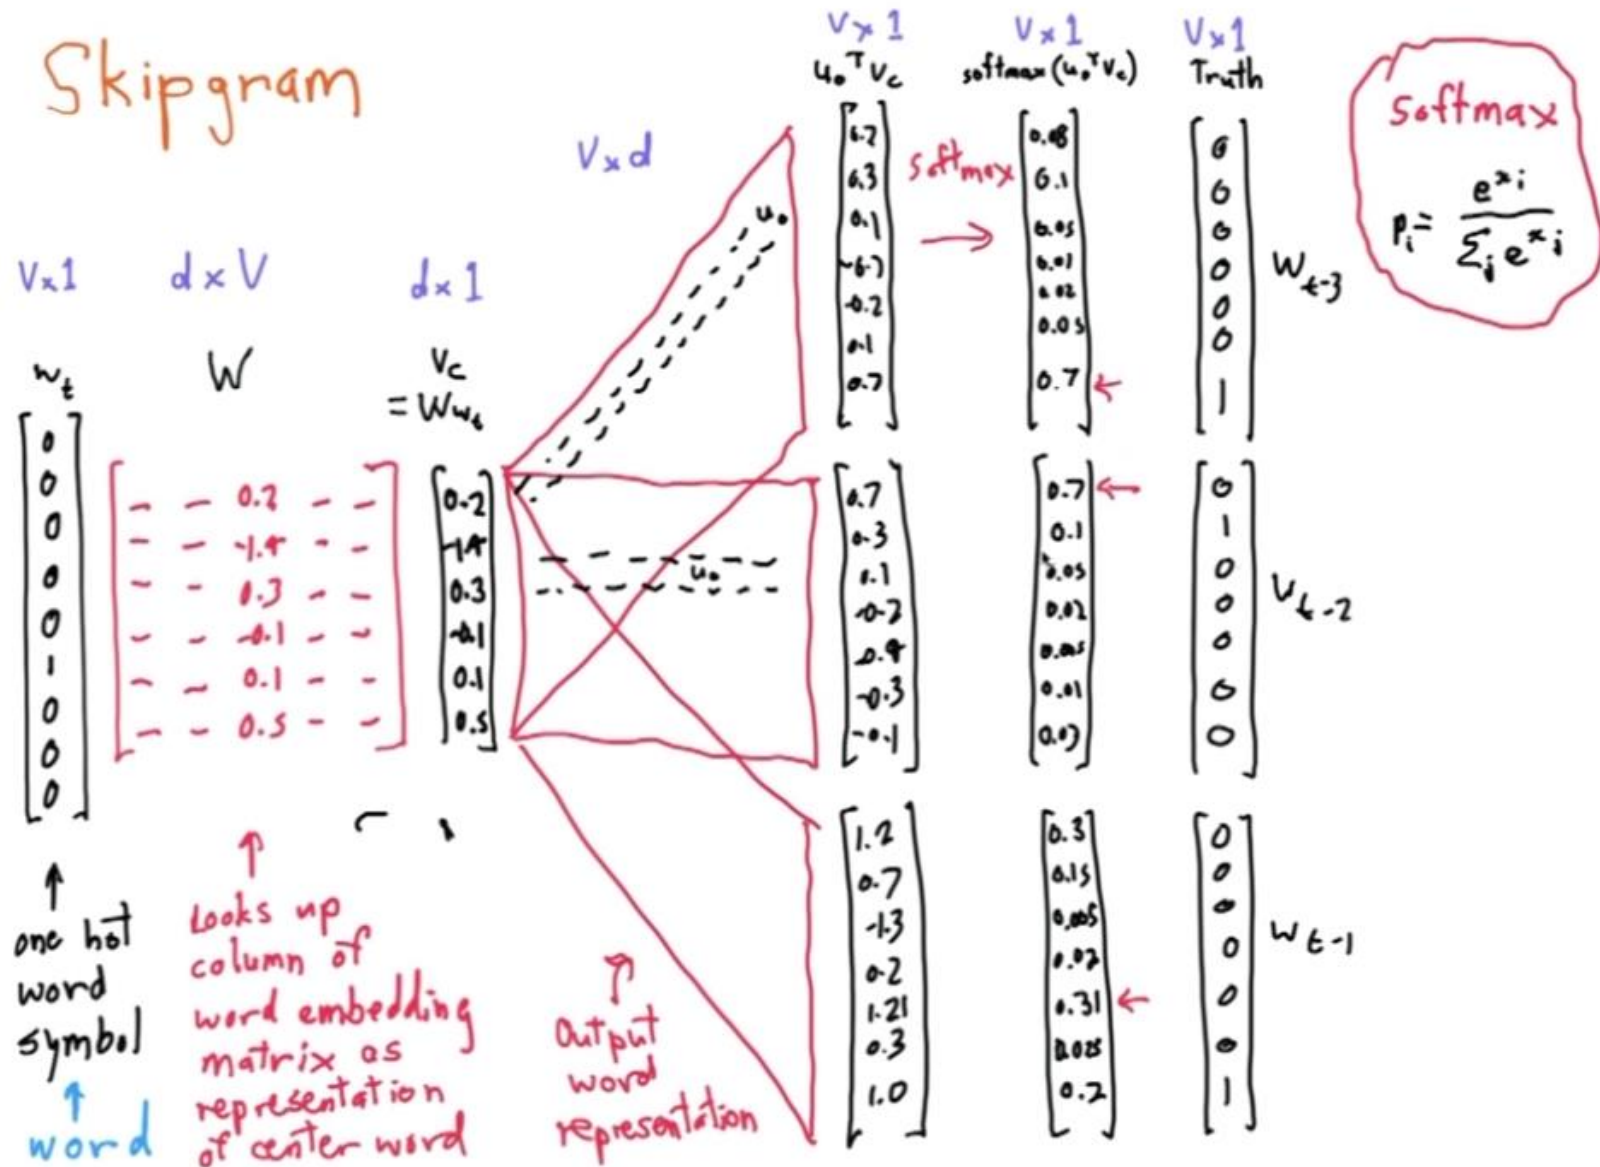 Skipgram
V×1
d×V
d×1
V×d
V×1
V×1
V×1
u₀ᵀ v_c
softmax(u₀ᵀ v_c)
Truth
softmax
p_i = e^{x_i} / Σ_j e^{x_j}
w_t
W
v_c
= Ww_t
0
0
0
0
0
1
0
0
0
0.2
-1.4
0.3
-0.1
0.1
0.5
0.2
-1.4
0.3
-0.1
0.1
0.5
u₀
u₀
0.2
0.3
0.1
-0.7
-0.2
0.1
0.7
softmax
0.08
0.1
0.05
0.01
0.02
0.05
0.7
0
0
0
0
0
0
1
W_{t-3}
0.7
0.3
0.1
-0.2
-0.4
-0.3
-0.1
0.7
0.1
0.05
0.02
0.01
0
1
0
0
0
0
0
1.2
0.7
-1.3
0.2
1.21
0.3
1.0
0.3
0.15
0.005
0.02
0.31
0.025
0.2
0
0
0
0
0
0
1
W_{t-1}
one hot
word
symbol
word
Looks up
column of
word embedding
matrix as
representation
of center word
Output
word
representation